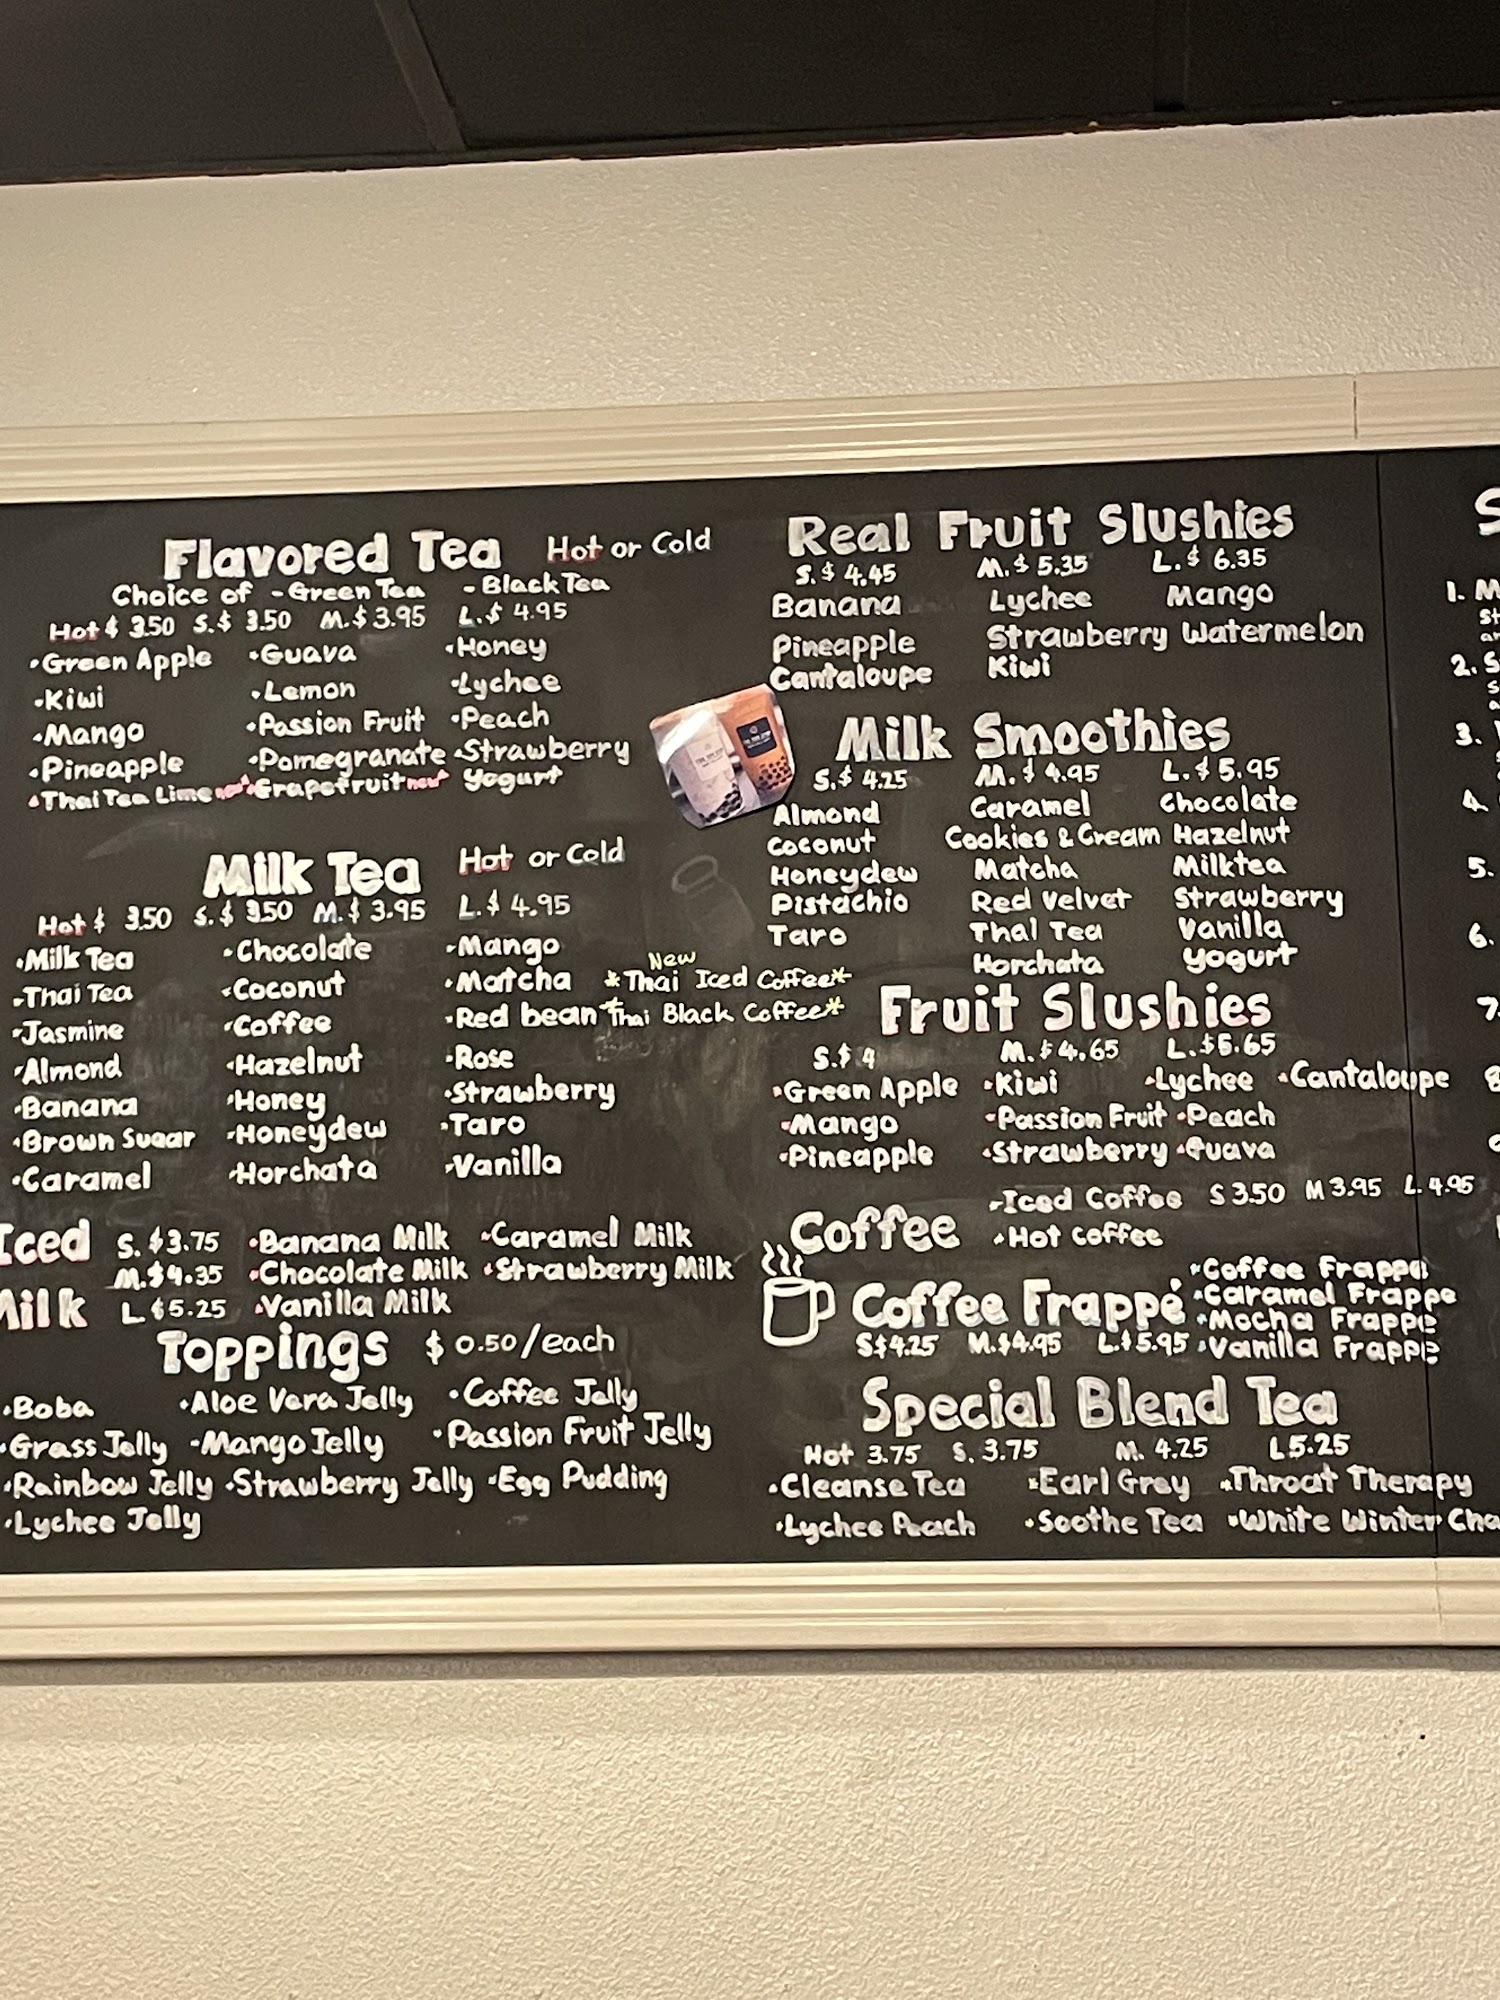 Flavored Tea Hot or Cold
Choice of - Green Tea - Black Tea
Hot $ 3.50 S.$ 3.50 M.$ 3.95 L.$ 4.95
•Green Apple •Guava •Honey
•Kiwi •Lemon •Lychee
•Mango •Passion Fruit •Peach
•Pineapple •Pomegranate •Strawberry
•Thai Tea Lime new •Grapefruit new Yogurt
Milk Tea Hot or Cold
Hot $ 3.50 S.$ 3.50 M.$ 3.95 L.$ 4.95
•Milk Tea •Chocolate •Mango
•Thai Tea •Coconut •Matcha
•Jasmine •Coffee •Red bean
•Almond •Hazelnut •Rose
•Banana •Honey •Strawberry
•Brown Sugar •Honeydew •Taro
•Caramel •Horchata •Vanilla
New
*Thai Iced Coffee*
*Thai Black Coffee*
Iced Milk
S. $3.75 •Banana Milk •Caramel Milk
M.$4.35 •Chocolate Milk •Strawberry Milk
L $5.25 •Vanilla Milk
Toppings $ 0.50/each
•Boba •Aloe Vera Jelly •Coffee Jelly
•Grass Jelly •Mango Jelly •Passion Fruit Jelly
•Rainbow Jelly •Strawberry Jelly •Egg Pudding
•Lychee Jelly
Real Fruit Slushies
S.$ 4.45 M.$ 5.35 L.$ 6.35
Banana Lychee Mango
Pineapple Strawberry Watermelon
Cantaloupe Kiwi
Milk Smoothies
S.$ 4.25 M.$ 4.95 L.$ 5.95
Almond Caramel Chocolate
Coconut Cookies & Cream Hazelnut
Honeydew Matcha Milktea
Pistachio Red Velvet Strawberry
Taro Thai Tea Vanilla
Horchata Yogurt
Fruit Slushies
S.$ 4 M.$4.65 L.$5.65
•Green Apple •Kiwi •Lychee •Cantaloupe
•Mango •Passion Fruit •Peach
•Pineapple •Strawberry •Guava
Coffee
•Iced Coffee S 3.50 M 3.95 L.4.95
•Hot coffee
Coffee Frappé
S$4.25 M.$4.95 L.$5.95
•Coffee Frappe
•Caramel Frappe
•Mocha Frappe
•Vanilla Frappe
Special Blend Tea
Hot 3.75 S. 3.75 M. 4.25 L5.25
•Cleanse Tea •Earl Grey •Throat Therapy
•Lychee Peach •Soothe Tea •White Winter Cha
S
1. M
2. S
3.
4.
5.
6.
7.
8